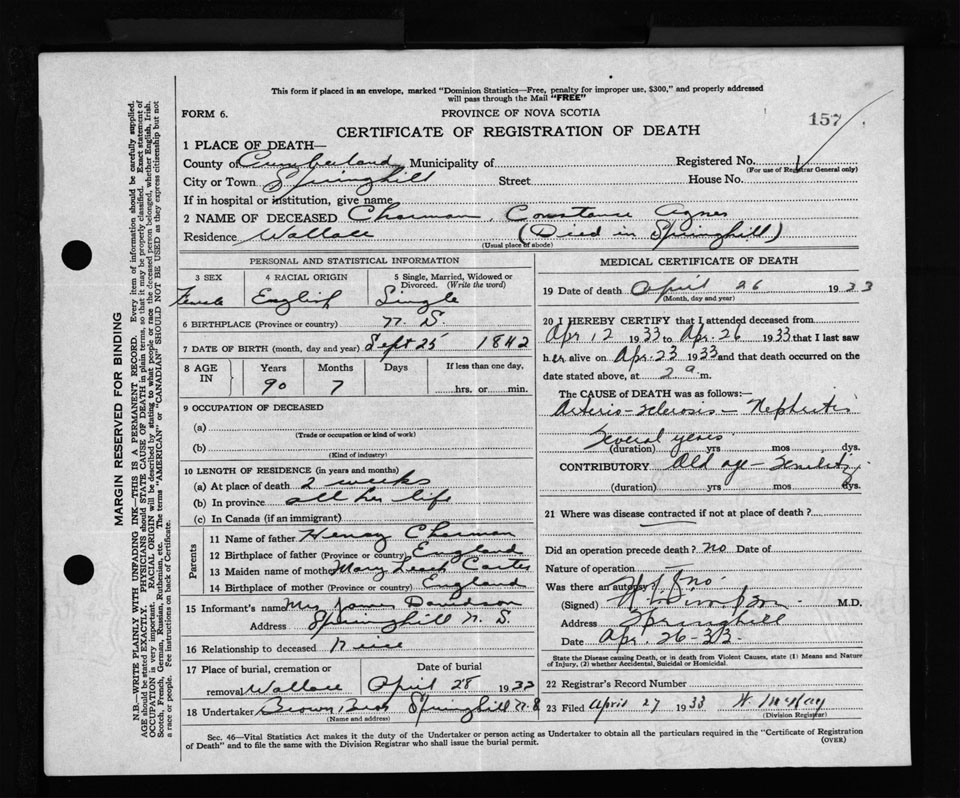 This form if placed in an envelope, marked "Dominion Statistics—Free, penalty for improper use, $300," and properly addressed
will pass through the Mail "FREE"
FORM 6.
PROVINCE OF NOVA SCOTIA
157
CERTIFICATE OF REGISTRATION OF DEATH
1 PLACE OF DEATH—
County of Cumberland Municipality of Registered No.
(For use of Registrar General only)
City or Town Springhill Street House No.
If in hospital or institution, give name
2 NAME OF DECEASED Charman, Constance Agnes
Residence Wallace (Died in Springhill)
(Usual place of abode)
PERSONAL AND STATISTICAL INFORMATION
3 SEX 4 RACIAL ORIGIN 5 Single, Married, Widowed or
Divorced. (Write the word)
Female English Single
6 BIRTHPLACE (Province or country) N. S.
7 DATE OF BIRTH (month, day and year) Sept 25 1842
8 AGE IN Years Months Days If less than one day,
90 7 hrs. or min.
9 OCCUPATION OF DECEASED
(a)
(Trade or occupation or kind of work)
(b)
(Kind of industry)
10 LENGTH OF RESIDENCE (in years and months)
(a) At place of death 2 weeks
(b) In province all her life
(c) In Canada (if an immigrant)
Parents
11 Name of father Henry Charman
12 Birthplace of father (Province or country) England
13 Maiden name of mother Mary Leach Carter
14 Birthplace of mother (Province or country) England
15 Informant's name Mrs James Davidson
Address Springhill N. S.
16 Relationship to deceased Niece
17 Place of burial, cremation or Date of burial
removal Wallace April 28 1933
18 Undertaker Brown Bros Springhill N S
(Name and address)
MEDICAL CERTIFICATE OF DEATH
19 Date of death April 26 1933
(Month, day and year)
20 I HEREBY CERTIFY that I attended deceased from
Apr, 12 1933 to Apr. 26 1933 that I last saw
her alive on Apr. 23 1933 and that death occurred on the
date stated above, at 2 a. m.
The CAUSE OF DEATH was as follows:—
Arterio-sclerosis — Nephritis
Several years
(duration) yrs mos dys.
CONTRIBUTORY Old age — Senility
(duration) yrs mos dys.
21 Where was disease contracted if not at place of death?
Did an operation precede death? no Date of
Nature of operation
Was there an autopsy? no
(Signed) Simpson M.D.
Address Springhill
Date Apr. 26-33
State the Disease causing Death, or in death from Violent Causes, state (1) Means and Nature
of Injury, (2) whether Accidental, Suicidal or Homicidal.
22 Registrar's Record Number
23 Filed April 27 1933 W. McKay
(Division Registrar)
Sec. 46—Vital Statistics Act makes it the duty of the Undertaker or person acting as Undertaker to obtain all the particulars required in the "Certificate of Registration
of Death" and to file the same with the Division Registrar who shall issue the burial permit.
(OVER)
MARGIN RESERVED FOR BINDING
N.B.—WRITE PLAINLY WITH UNFADING INK—THIS IS A PERMANENT RECORD. Every item of information should be carefully supplied.
AGE should be stated EXACTLY. PHYSICIANS should STATE CAUSE OF DEATH in plain terms, so that it may be properly classified. Exact statement of
OCCUPATION is very important. RACIAL ORIGIN will be described by stating to what people or race the deceased person belonged, whether English, Irish,
Scotch, French, German, Russian, Ruthenian, etc. The terms "AMERICAN" or "CANADIAN" SHOULD NOT BE USED as they express citizenship but not
a race or people. Fee instructions on back of Certificate.